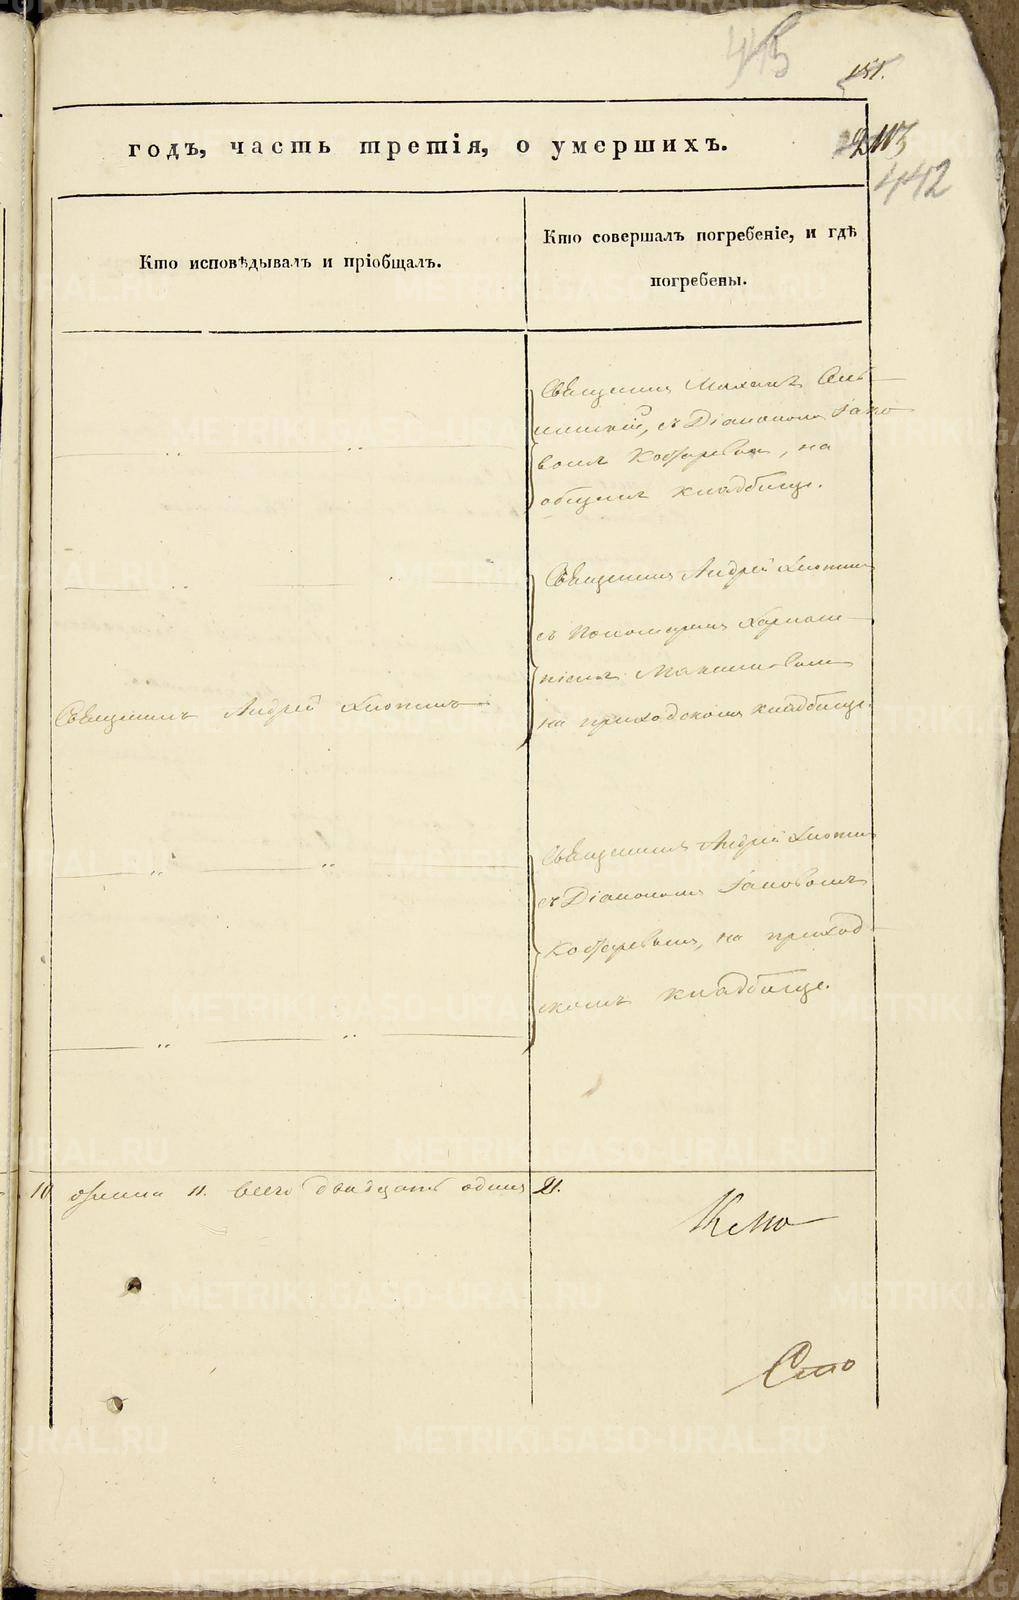 415
151.
годъ, часть третія, о умершихъ.
113
442
Кто исповѣдывалъ и пріобщалъ.
Кто совершалъ погребеніе, и гдѣ
погребены.
Священникъ Михаилъ
съ Діакономъ Іако
вомъ на
общемъ кладбищѣ.
Священникъ Андрей Хлопинъ
съ Пономаремъ
Максимовымъ
на приходскомъ кладбищѣ.
Священникъ Андрей Хлопинъ
Священникъ Андрей Хлопинъ
съ Діакономъ Іаковомъ
на приход
скомъ кладбищѣ.
10 11. всего двадцать одинъ 21.
METRIKI.GASO-URAL.RU